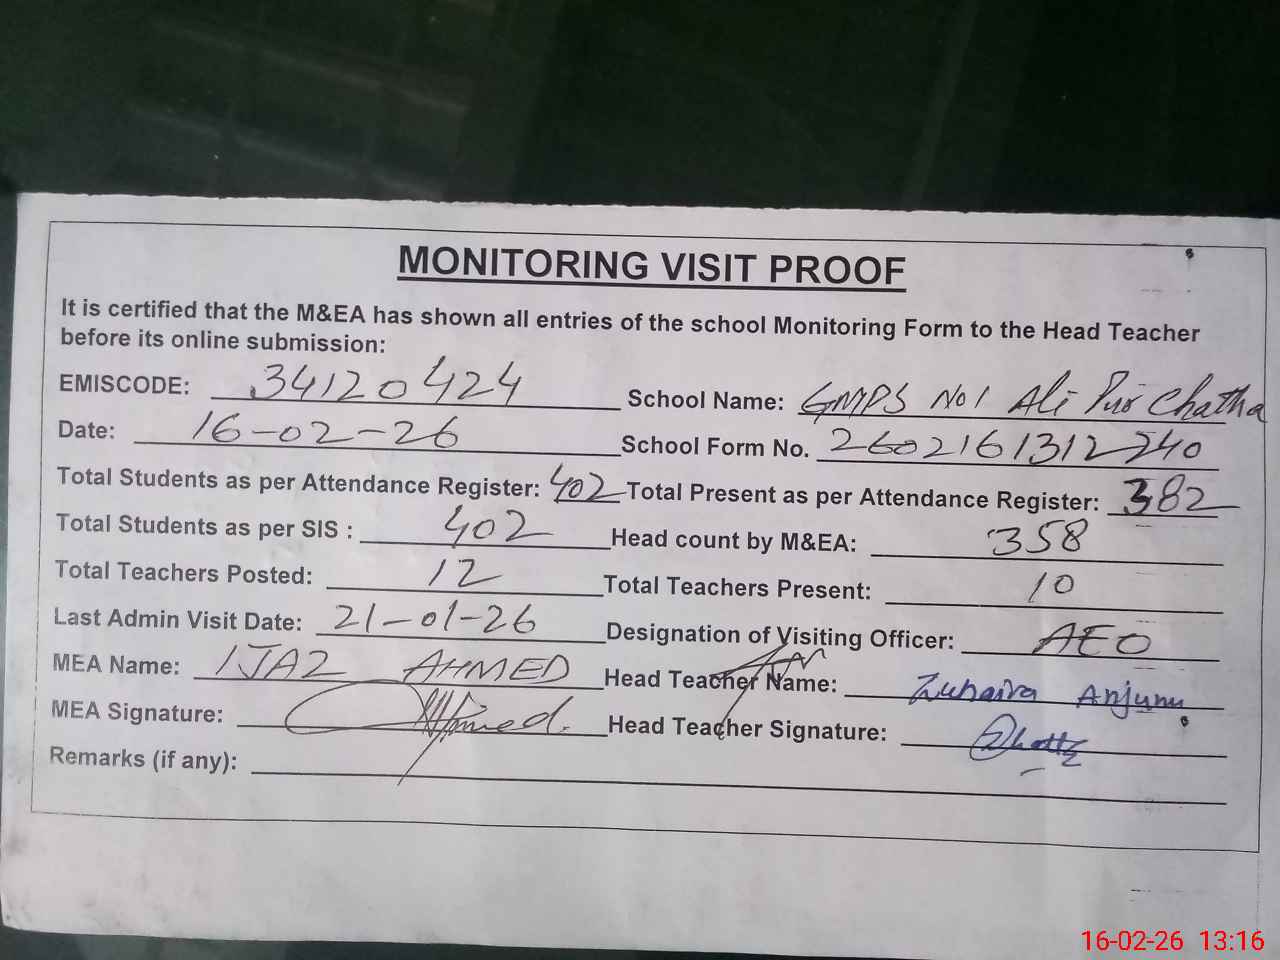 MONITORING VISIT PROOF
It is certified that the M&EA has shown all entries of the school Monitoring Form to the Head Teacher
before its online submission:
EMISCODE: 34120424 School Name: GMPS No 1 Ali Pur Chatha
Date: 16-02-26 School Form No. 2602161312240
Total Students as per Attendance Register: 402 Total Present as per Attendance Register: 382
Total Students as per SIS : 402 Head count by M&EA: 358
Total Teachers Posted: 12 Total Teachers Present: 10
Last Admin Visit Date: 21-01-26 Designation of Visiting Officer: AEO
MEA Name: IJAZ AHMED Head Teacher Name: Zuhaira Anjum
MEA Signature: Head Teacher Signature:
Remarks (if any):
16-02-26 13:16